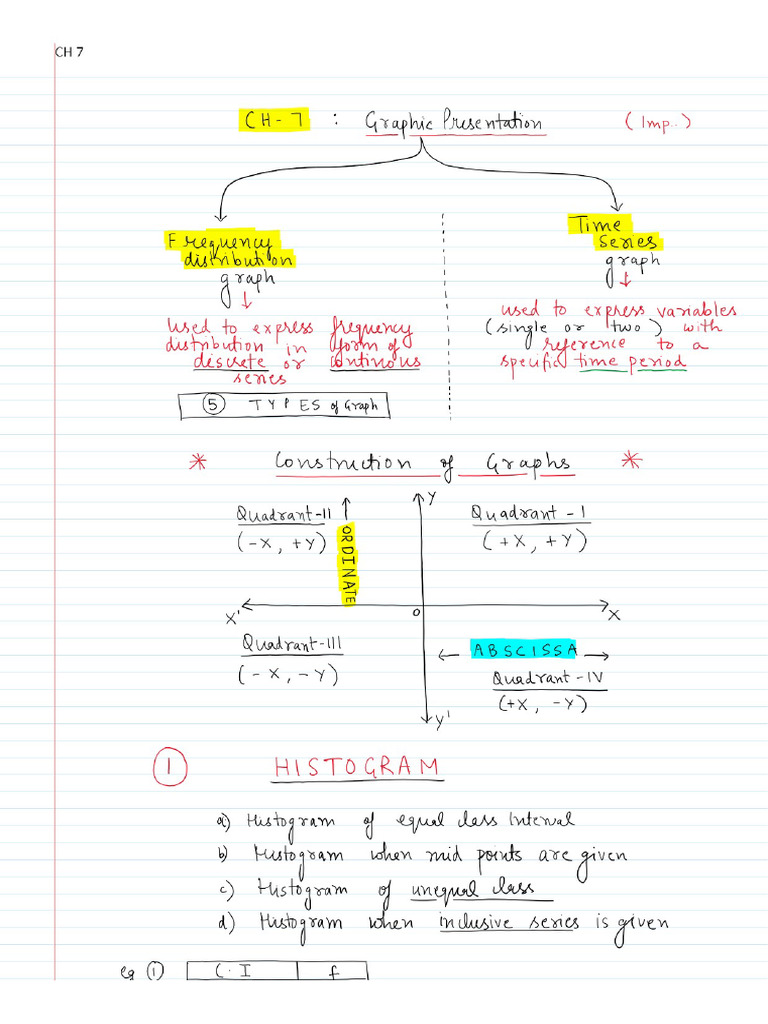 CH 7
CH-7 : Graphic Presentation (Imp..)
Frequency
distribution
graph
used to express frequency
distribution in form of
discrete or continous
series
5 TYPES of Graph
Time
Series
graph
used to express variables
(single or two) with
reference to a
specific time period
* Construction of Graphs *
Y
Quadrant-II
(-X, +Y)
ORDINATE
Quadrant-I
(+X, +Y)
X' O X
Quadrant-III
(-X, -Y)
ABSCISSA
Quadrant-IV
(+X, -Y)
Y'
1 HISTOGRAM
a) Histogram of equal class Interval
b) Histogram when mid points are given
c) Histogram of unequal class
d) Histogram when inclusive series is given
eg 1 C.I f